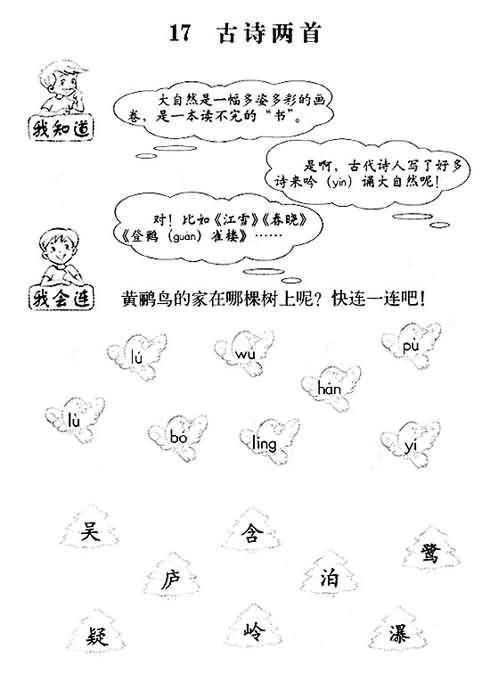 17 古诗两首
我知道
大自然是一幅多姿多彩的画
卷，是一本读不完的“书”。
是啊，古代诗人写了好多
诗来吟（yín）诵大自然呢！
对！比如《江雪》《春晓》
《登鹳（guàn）雀楼》……
我会连
黄鹂鸟的家在哪棵树上呢？快连一连吧！
lú wú pù
hán
lù bó lǐng yí
吴 含 鹭
庐 泊
疑 岭 瀑